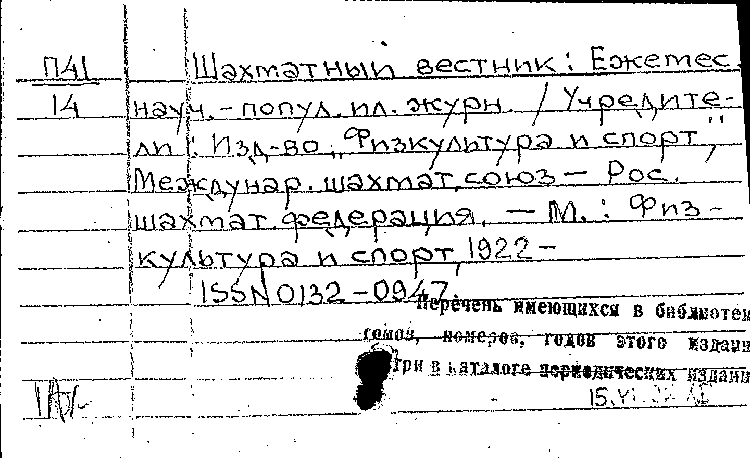 П41 Шахматный вестник: Ежемес.
14 науч.-попул. ил. журн. / Учредите-
ли: Изд-во „Физкультура и спорт",
Междунар. шахмат. союз — Рос.
шахмат. федерация. — М.: Физ-
культура и спорт, 1922 —
ISSN 0132-0947.
Перечень имеющихся в библиотек
томов, номеров, годов этого издани
три в каталоге периодических издани
15.VI.